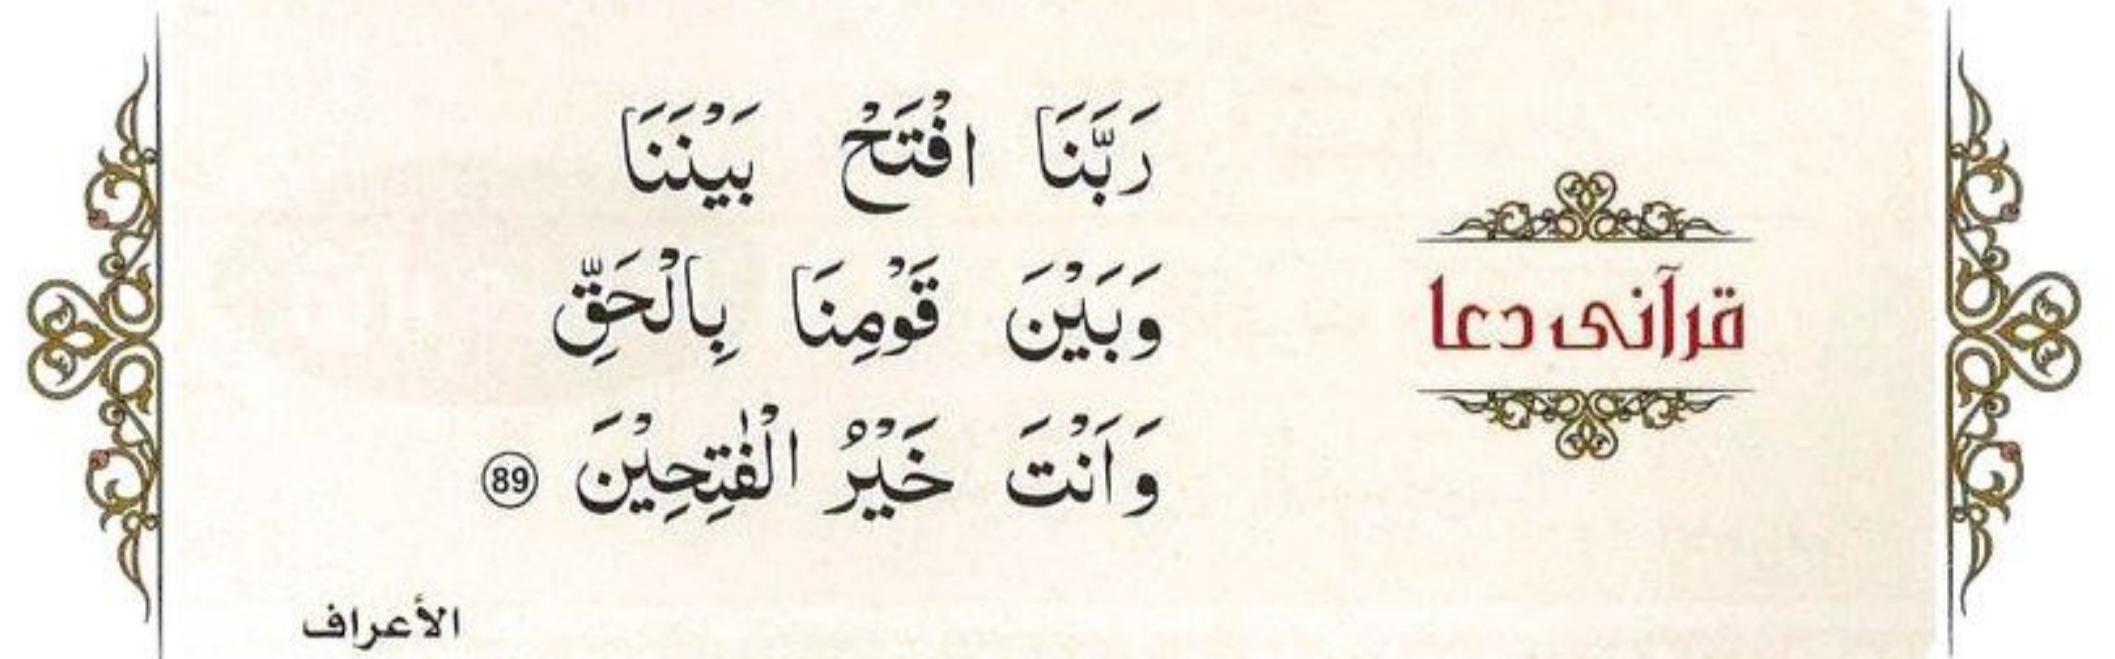 قرآنی دعا
رَبَّنَا افْتَحْ بَيْنَنَا
وَبَيْنَ قَوْمِنَا بِالْحَقِّ
وَاَنْتَ خَيْرُ الْفٰتِحِيْنَ 89
الأعراف